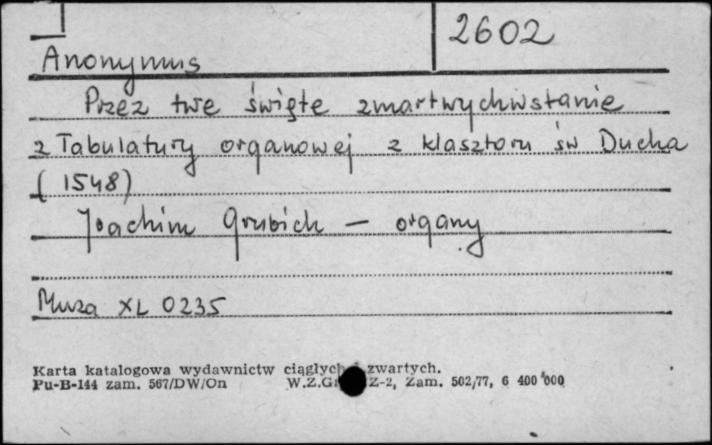 2602
Anonymus
Przez twe święte zmartwychwstanie
z Tabulatury organowej z klasztoru św Ducha
(1548)
Joachim Grubich – organy
Muza XL 0235
Karta katalogowa wydawnictw ciągłych zwartych.
Pu-B-144 zam. 567/DW/On W.Z.Gr Z-2, Zam. 502/77, 6 400 000